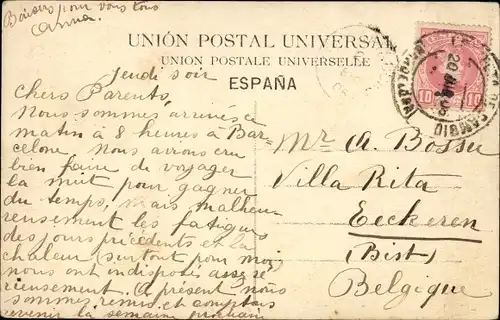 Baisers pour vous tous
Anna.
UNIÓN POSTAL UNIVERSAL
UNION POSTALE UNIVERSELLE
ESPAÑA
Jeudi soir
Chers Parents,
Nous sommes arrivés ce
matin à 8 heures à Bar-
celone. Nous avons cru
bien faire de voyager
la nuit pour gagner
du temps, mais malheu-
reusement les fatigues
des jours précédents et la
chaleur (surtout pour moi)
nous ont indisposés assez sé-
rieusement. A présent nous
sommes remis et comptons
revenir la semaine prochain
Mr A. Bossu
Villa Rita
Eeckeren
(Bist)
Belgique
10 10
CAMBIO
BARCELONA